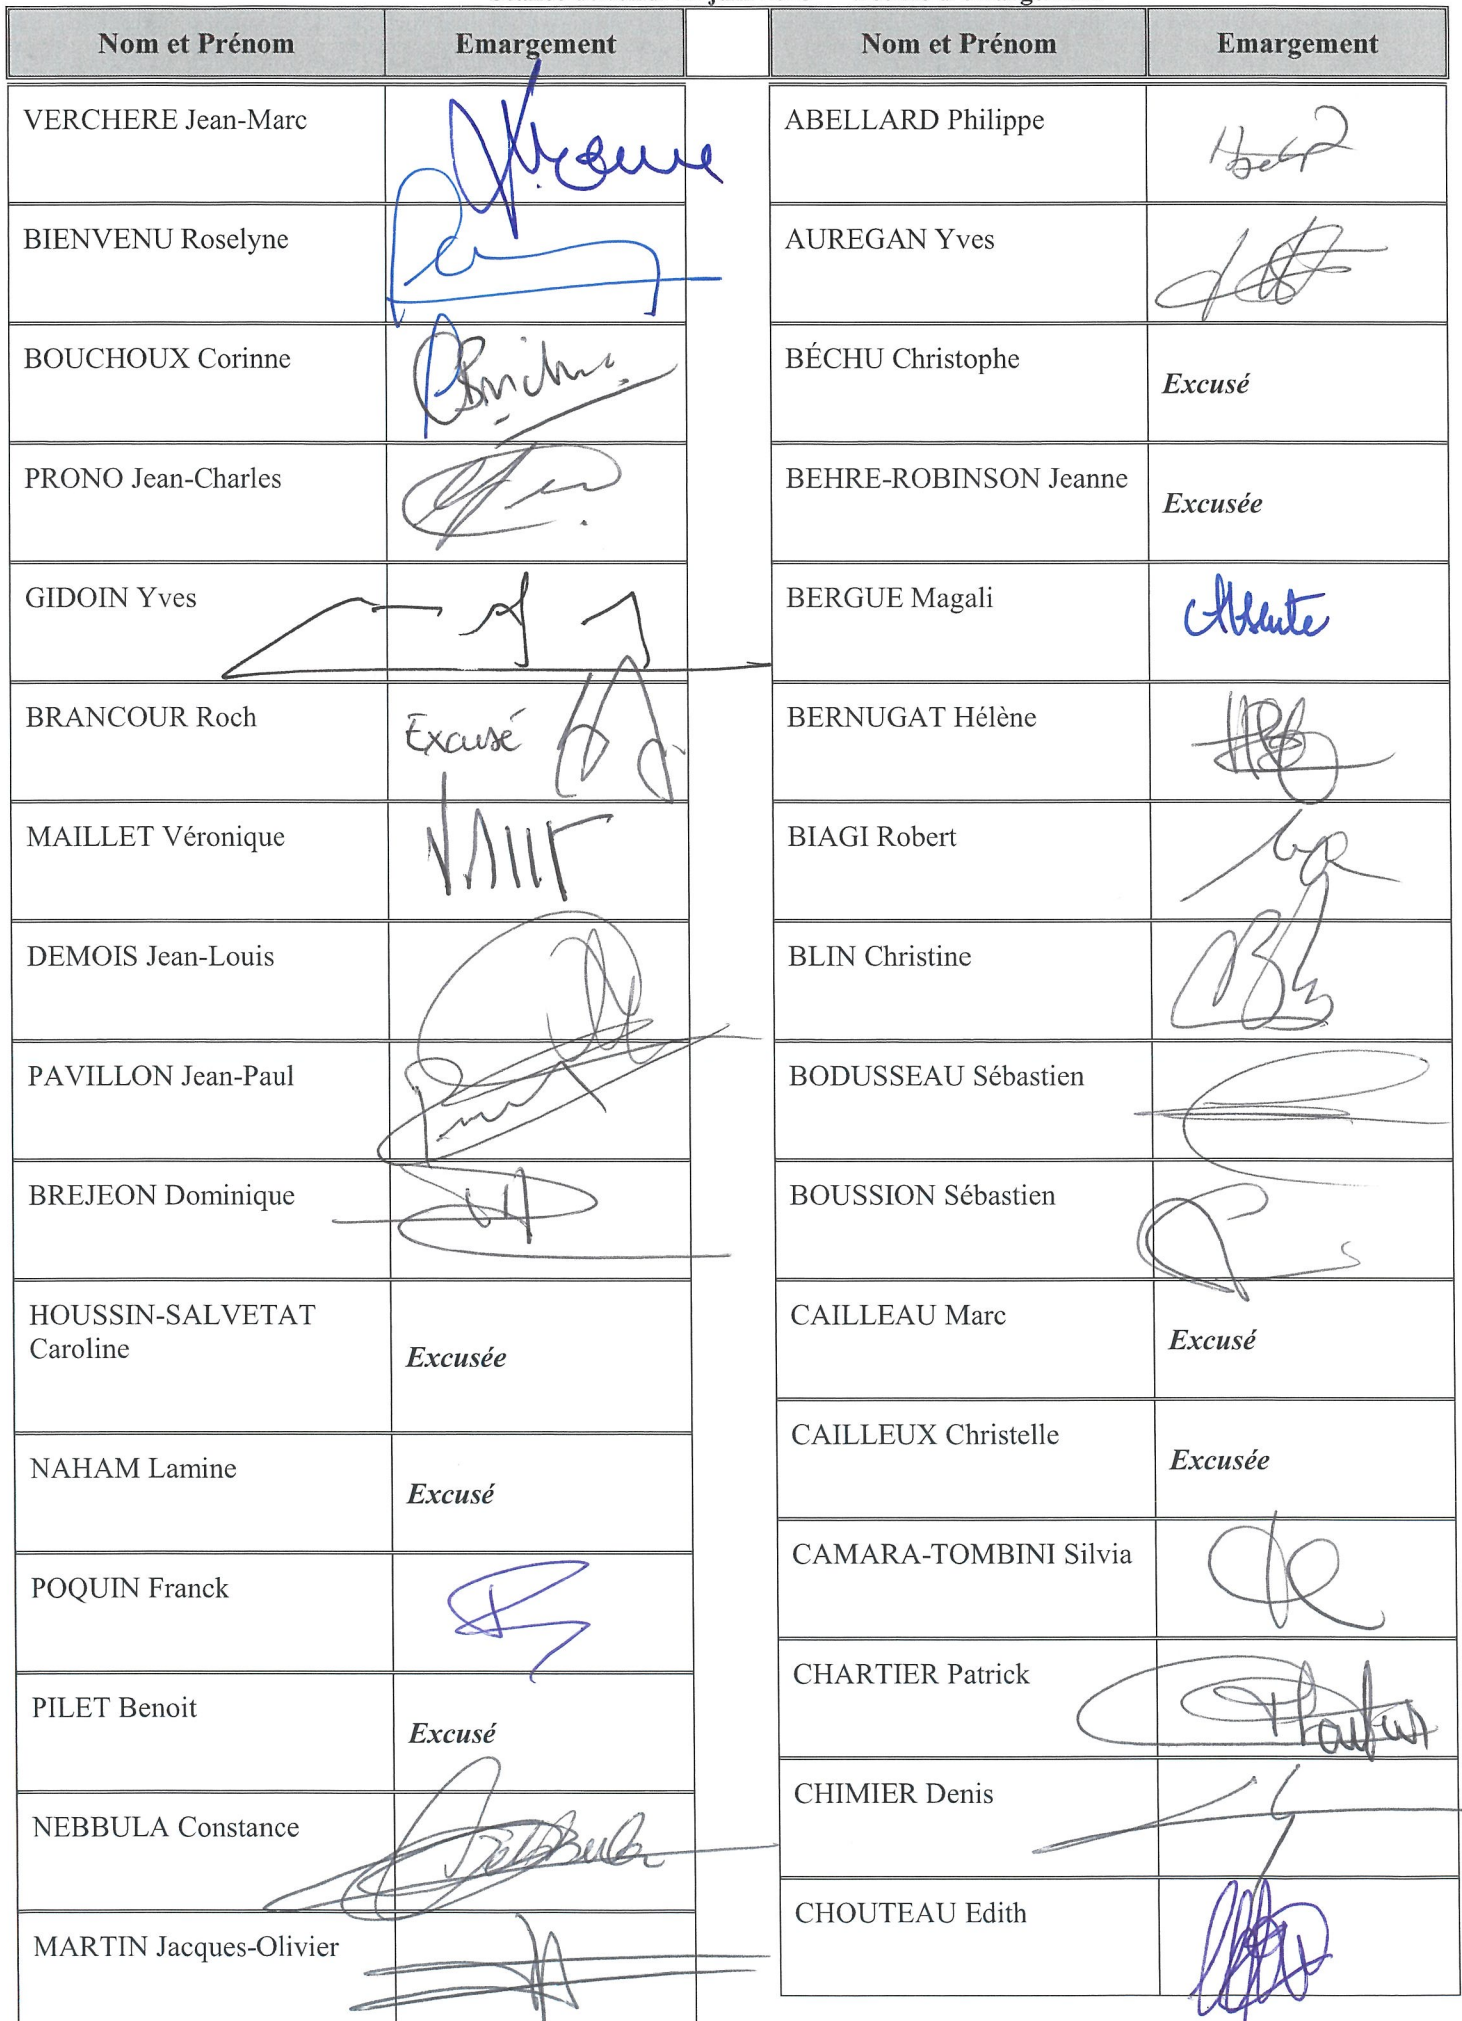 Nom et Prénom Emargement
VERCHERE Jean-Marc
BIENVENU Roselyne
BOUCHOUX Corinne
PRONO Jean-Charles
GIDOIN Yves
BRANCOUR Roch Excusé
MAILLET Véronique
DEMOIS Jean-Louis
PAVILLON Jean-Paul
BREJEON Dominique
HOUSSIN-SALVETAT
Caroline
Excusée
NAHAM Lamine
Excusé
POQUIN Franck
PILET Benoit
Excusé
NEBBULA Constance
MARTIN Jacques-Olivier
Nom et Prénom Emargement
ABELLARD Philippe
AUREGAN Yves
BÉCHU Christophe
Excusé
BEHRE-ROBINSON Jeanne
Excusée
BERGUE Magali Absente
BERNUGAT Hélène
BIAGI Robert
BLIN Christine
BODUSSEAU Sébastien
BOUSSION Sébastien
CAILLEAU Marc
Excusé
CAILLEUX Christelle
Excusée
CAMARA-TOMBINI Silvia
CHARTIER Patrick
CHIMIER Denis
CHOUTEAU Edith